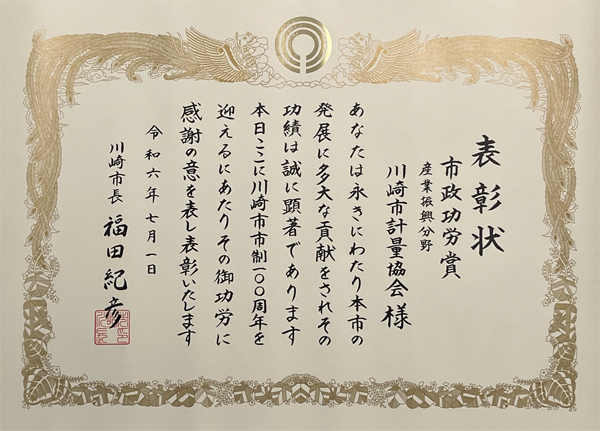 表彰状
市政功労賞
産業振興分野
川崎市計量協会様
あなたは永きにわたり本市の
発展に多大な貢献をされその
功績は誠に顕著であります
本日ここに川崎市市制一〇〇周年を
迎えるにあたりその御功労に
感謝の意を表し表彰いたします
令和六年七月一日
川崎市長 福田紀彦